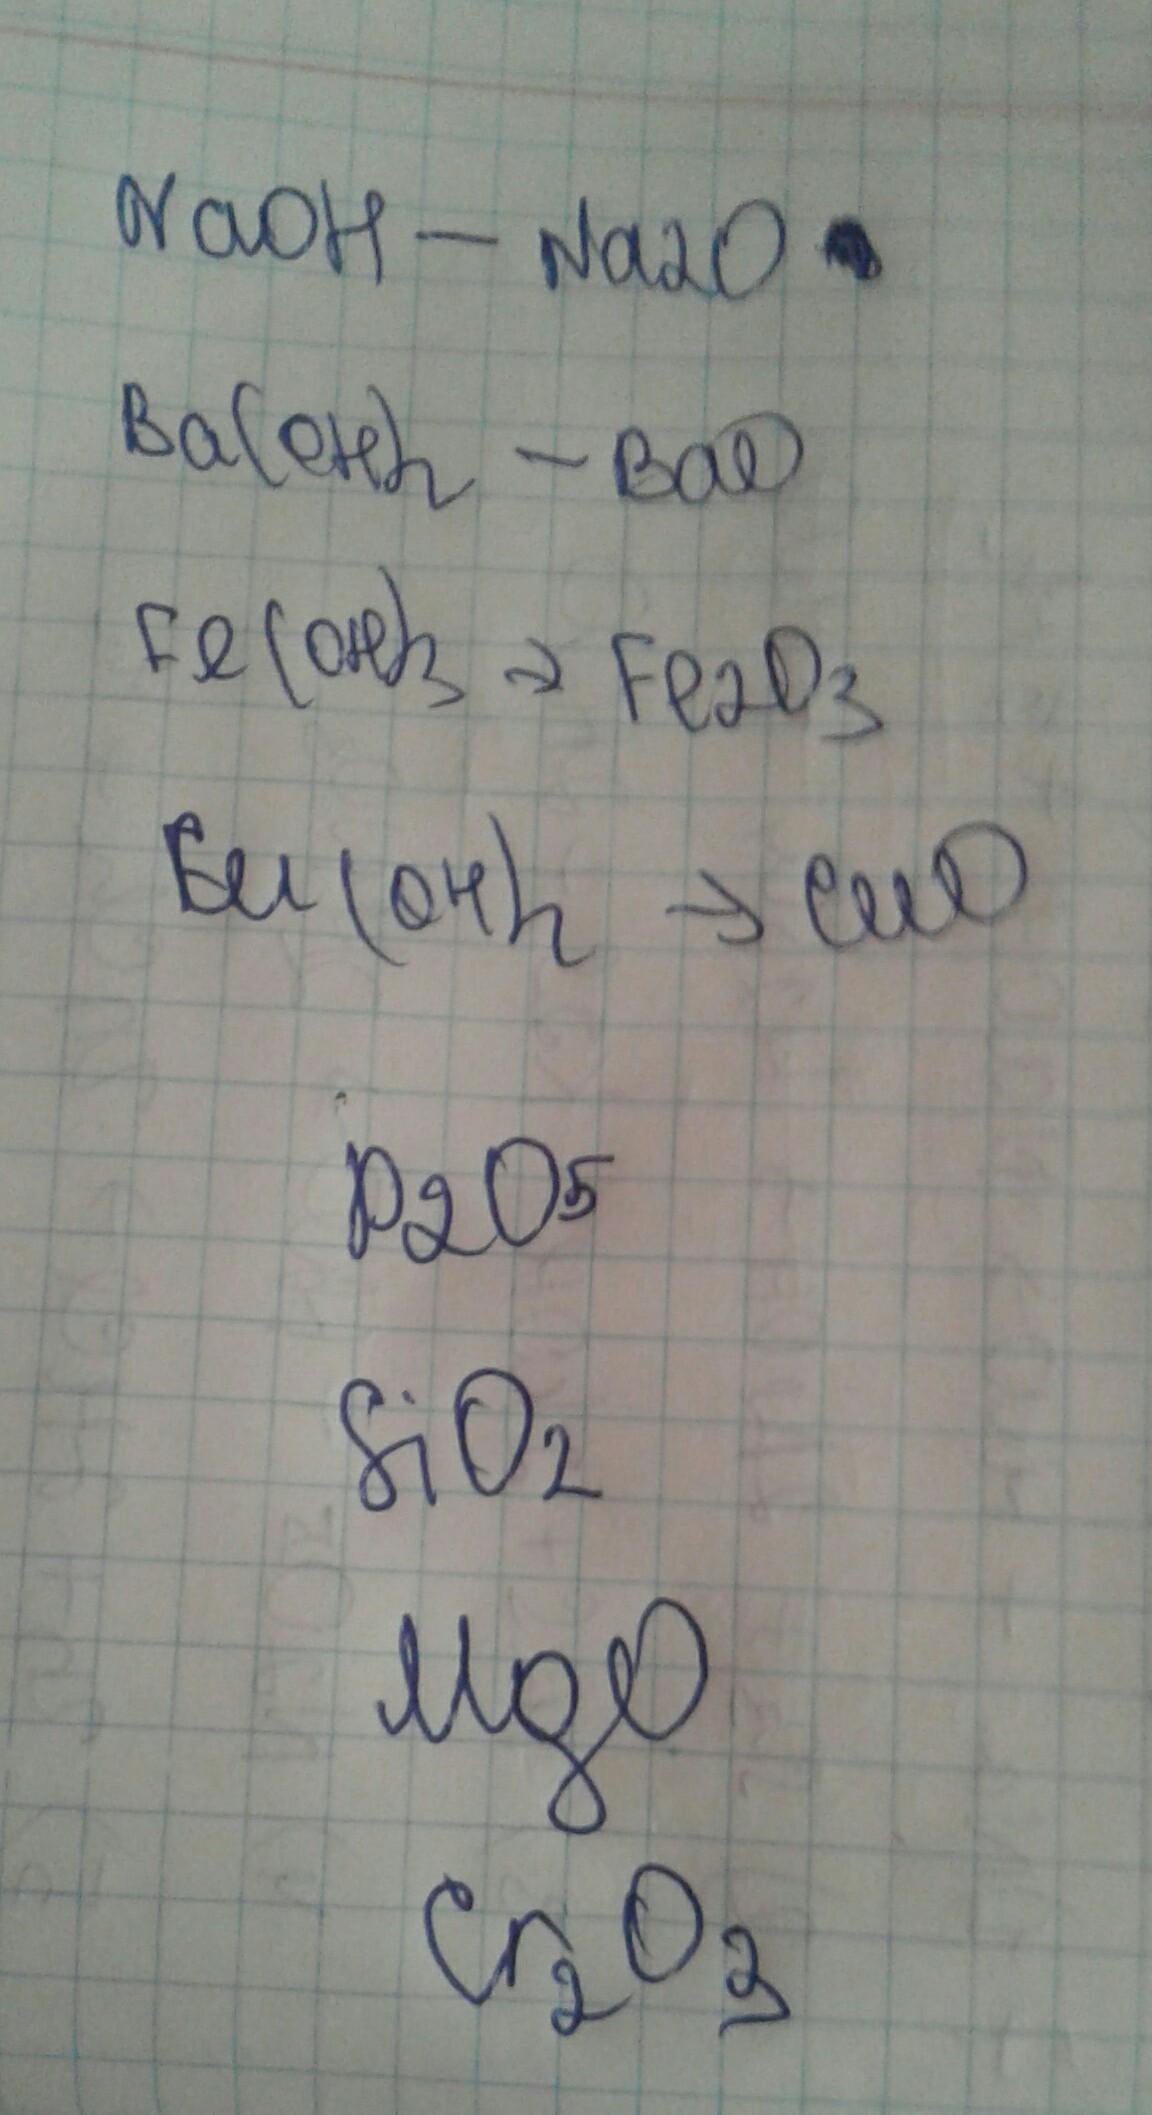 NaOH — Na2O
Ba(OH)2 — BaO
Fe(OH)3 → Fe2O3
Cu(OH)2 → CuO
P2O5
SiO2
MgO
Cr2O3